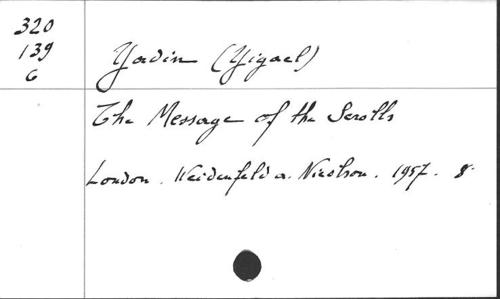 320
139
6
Yadin (Yigael)
The Message of the Scrolls
London. Weidenfeld a. Nicolson. 1957. 8°